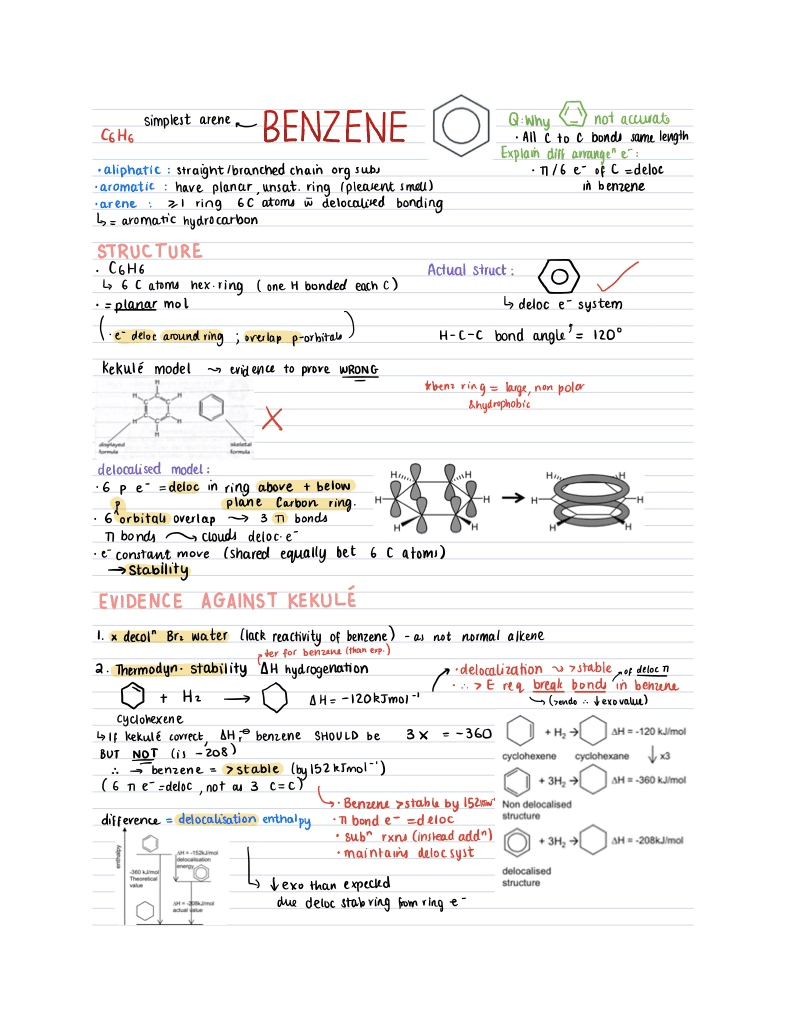 simplest arene
BENZENE
C6H6
Q: Why not accurate
· All C to C bonds same length
Explain diff arrangeⁿ e⁻:
· π/6 e⁻ of C = deloc
in benzene
· aliphatic : straight/branched chain org subs
· aromatic : have planar, unsat. ring (pleasent smell)
· arene : ≥1 ring 6C atoms w̄ delocalised bonding
↳ = aromatic hydrocarbon
STRUCTURE
· C6H6
↳ 6 C atoms hex. ring ( one H bonded each C )
· = planar mol
( · e⁻ deloc around ring ; overlap p-orbitals )
Actual struct :
↳ deloc e⁻ system
H-C-C bond angle = 120°
Kekulé model ⤳ evidence to prove WRONG
displayed formula
skeletal formula
*benz ring = large, non polar
& hydrophobic
delocalised model :
· 6 p e⁻ = deloc in ring above + below
plane Carbon ring.
· 6 p orbitals overlap → 3 π bonds
π bonds → clouds deloc. e⁻
· e⁻ constant move (shared equally bet 6 C atoms)
→ Stability
H H H H H H
H H H H H H
EVIDENCE AGAINST KEKULÉ
1. x decolⁿ Br₂ water (lack reactivity of benzene) - as not normal alkene
2. Thermodyn. stability ΔH hydrogenation
ter for benzene (than exp.)
+ H₂ → ΔH = -120 kJmol⁻¹
cyclohexene
· delocalization ⤳ >stable
· ∴ > E req break bonds in benzene
of deloc π
(>endo ∴ ↓ exo value)
↳ If Kekulé correct, ΔHr⦵ benzene SHOULD be 3 x = -360
BUT NOT (is -208)
∴ → benzene = >stable (by 152 kJmol⁻¹)
( 6 π e⁻ = deloc, not as 3 C=C )
↳ · Benzene > stable by 152
· π bond e⁻ = deloc
· subⁿ rxns (instead addⁿ)
· maintains deloc syst
difference = delocalisation enthalpy
enthalpy
-360 kJ/mol
Theoretical
value
ΔH = -152kJ/mol
delocalisation
energy
ΔH = -208kJ/mol
actual value
↳ ↓ exo than expected
due deloc stab ring from ring e⁻
+ H₂ → ΔH = -120 kJ/mol
cyclohexene cyclohexane x3
+ 3H₂ → ΔH = -360 kJ/mol
Non delocalised
structure
+ 3H₂ → ΔH = -208kJ/mol
delocalised
structure